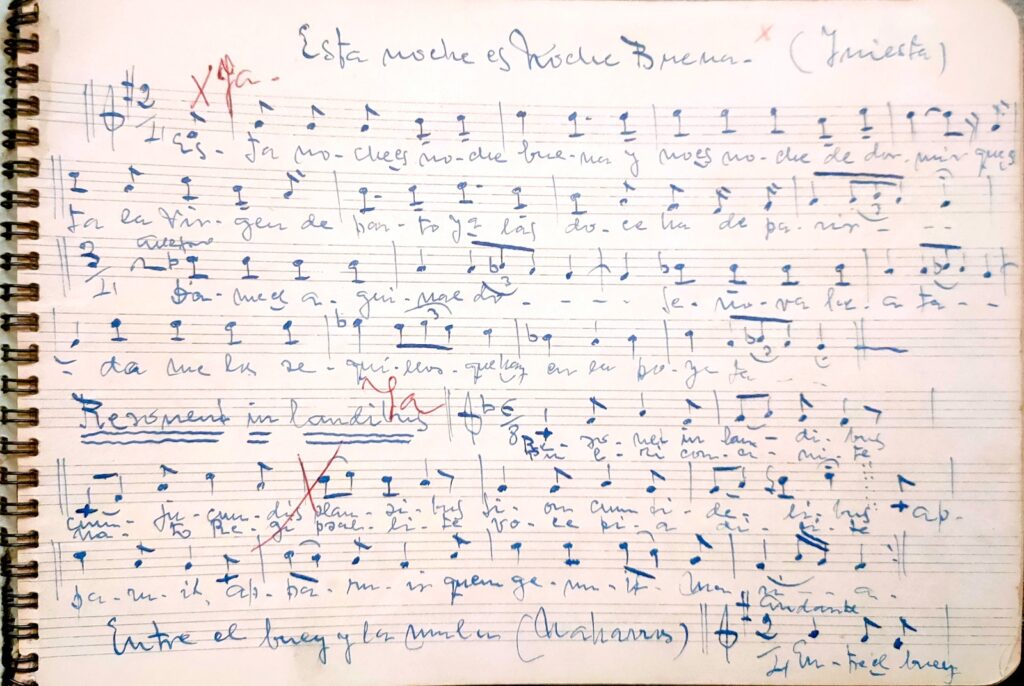 Esta noche es Noche Buena. x (Yniesta)
2/4 X Ya.
Es- ta no-chees no-che bue-na y noes no-che de dor-mir ques
ta la Vir-gen de par-to ya las do-ce ha de pa-rir - - -
3/4
Da-meel a-gui-nal do - - - - Se-ño-ra Lu-a ta - -
da me los se-qui-llos-que hay en la po-ya ta - - -
Resonent in laudibus Ya 6/8 Re-so-net in lau-di-bus
cum- ju-cun-dis plau-si-bus Si-on cum fi-de-li-bus ap-
na-to Re-gi psal-li-te vo-ce pi-a di-ci-te
pa-ru-it, ap-pa-ru-it quem ge-nu-it Ma-ri-a.
andante
Entre el buey y la mula (Naharros) 2/4 En-treel buey